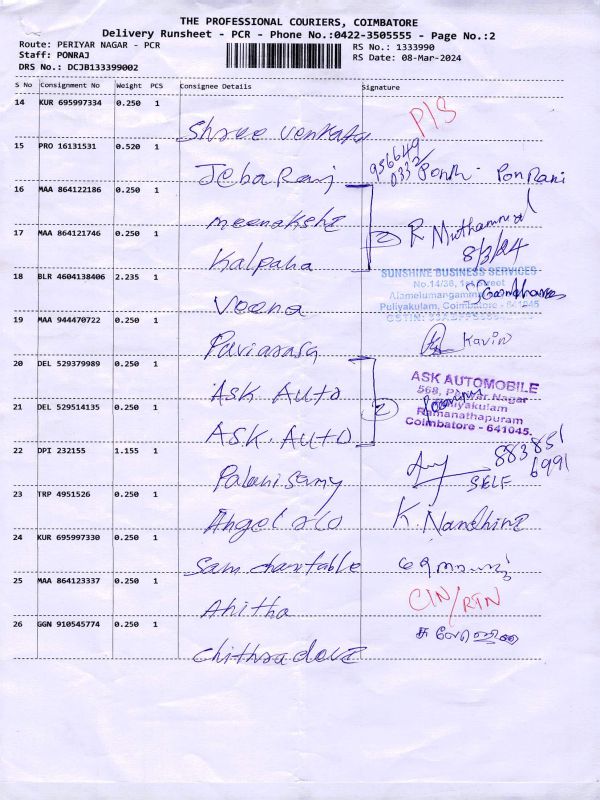 THE PROFESSIONAL COURIERS, COIMBATORE
Delivery Runsheet - PCR - Phone No.:0422-3505555 - Page No.:2
Route: PERIYAR NAGAR - PCR
RS No.: 1333990
Staff: PONRAJ
RS Date: 08-Mar-2024
DRS No.: DCJB133399002
S No Consignment No Weight PCS Consignee Details Signature
14 KUR 695997334 0.250 1
P/S
Shree Venkata
15 PRO 16131531 0.520 1
956649
0332
Jeba Raj Ponrani
16 MAA 864122186 0.250 1
Meenakshi
17 MAA 864121746 0.250 1
2 R Muthammal
8/3/24
Kalpana
18 BLR 4604138406 2.235 1
SUNSHINE BUSINESS SERVICES
No.14/36, 1st Street
Puliyakulam, Coimbatore - 641045
Veena
19 MAA 944470722 0.250 1
Kavin
20 DEL 529379989 0.250 1
ASK AUTO
ASK AUTOMOBILE
21 DEL 529514135 0.250 1
2
Puliyakulam
Ramanathapuram
Coimbatore - 641045.
ASK. AUTO
22 DPI 232155 1.155 1
883851
6991
Palanisamy SELF
23 TRP 4951526 0.250 1
K. Nandhini
24 KUR 695997330 0.250 1
Sam charitable
25 MAA 864123337 0.250 1
CIN/RTN
Anitha
26 GGN 910545774 0.250 1
Chithradevi